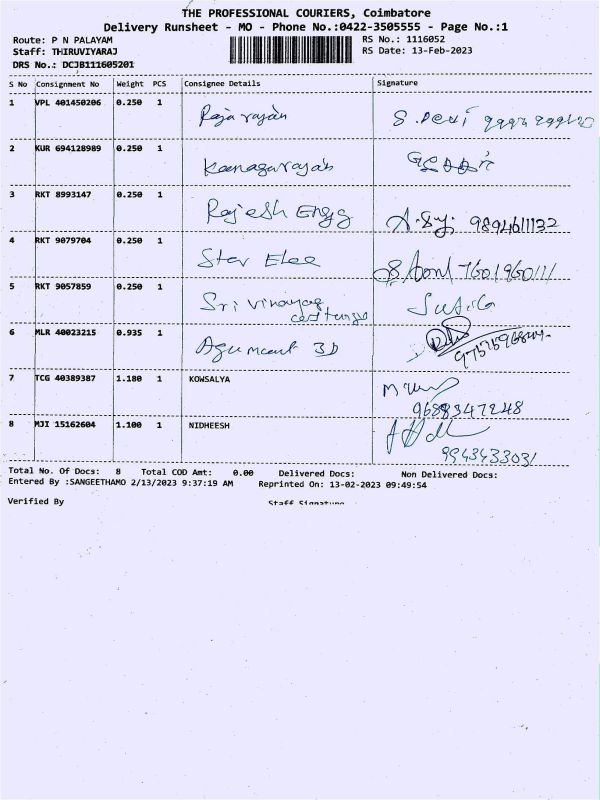 THE PROFESSIONAL COURIERS, Coimbatore
Delivery Runsheet - MO - Phone No.:0422-3505555 - Page No.:1
Route: P N PALAYAM RS No.: 1116052
Staff: THIRUVIYARAJ RS Date: 13-Feb-2023
DRS No.: DCJB111605201
S No Consignment No Weight PCS Consignee Details Signature
1 VPL 401450206 0.250 1 Rajarajan
2 KUR 694128989 0.250 1 Kanagarajan
3 RKT 8993147 0.250 1 Rajesh Engg 9894611132
4 RKT 9079704 0.250 1 Star Elee 7601960111
5 RKT 9057859 0.250 1 Sri Vinayag
6 MLR 40023215 0.935 1 3D
7 TCG 40389387 1.180 1 KOWSALYA 9688347248
8 MJI 15162604 1.100 1 NIDHEESH 9943433031
Total No. Of Docs: 8 Total COD Amt: 0.00 Delivered Docs: Non Delivered Docs:
Entered By :SANGEETHAMO 2/13/2023 9:37:19 AM Reprinted On: 13-02-2023 09:49:54
Verified By Staff Signature